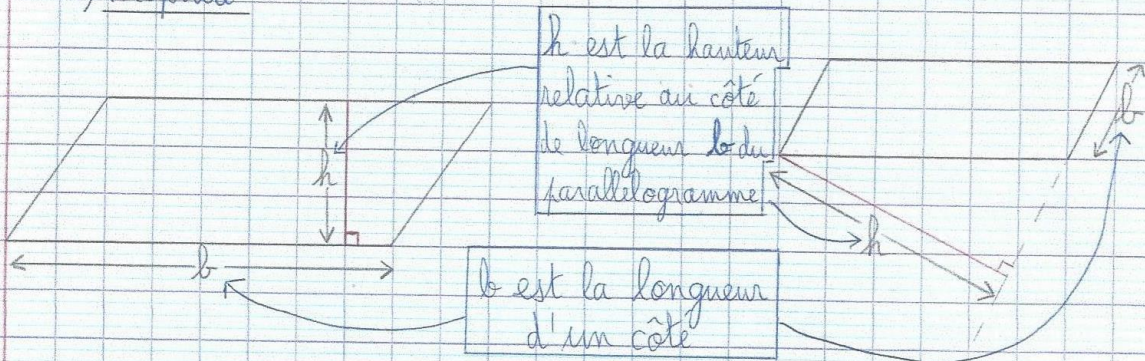 h est la hauteur
relative au côté
de longueur b du
parallélogramme
h
b
b
h
b est la longueur
d'un côté